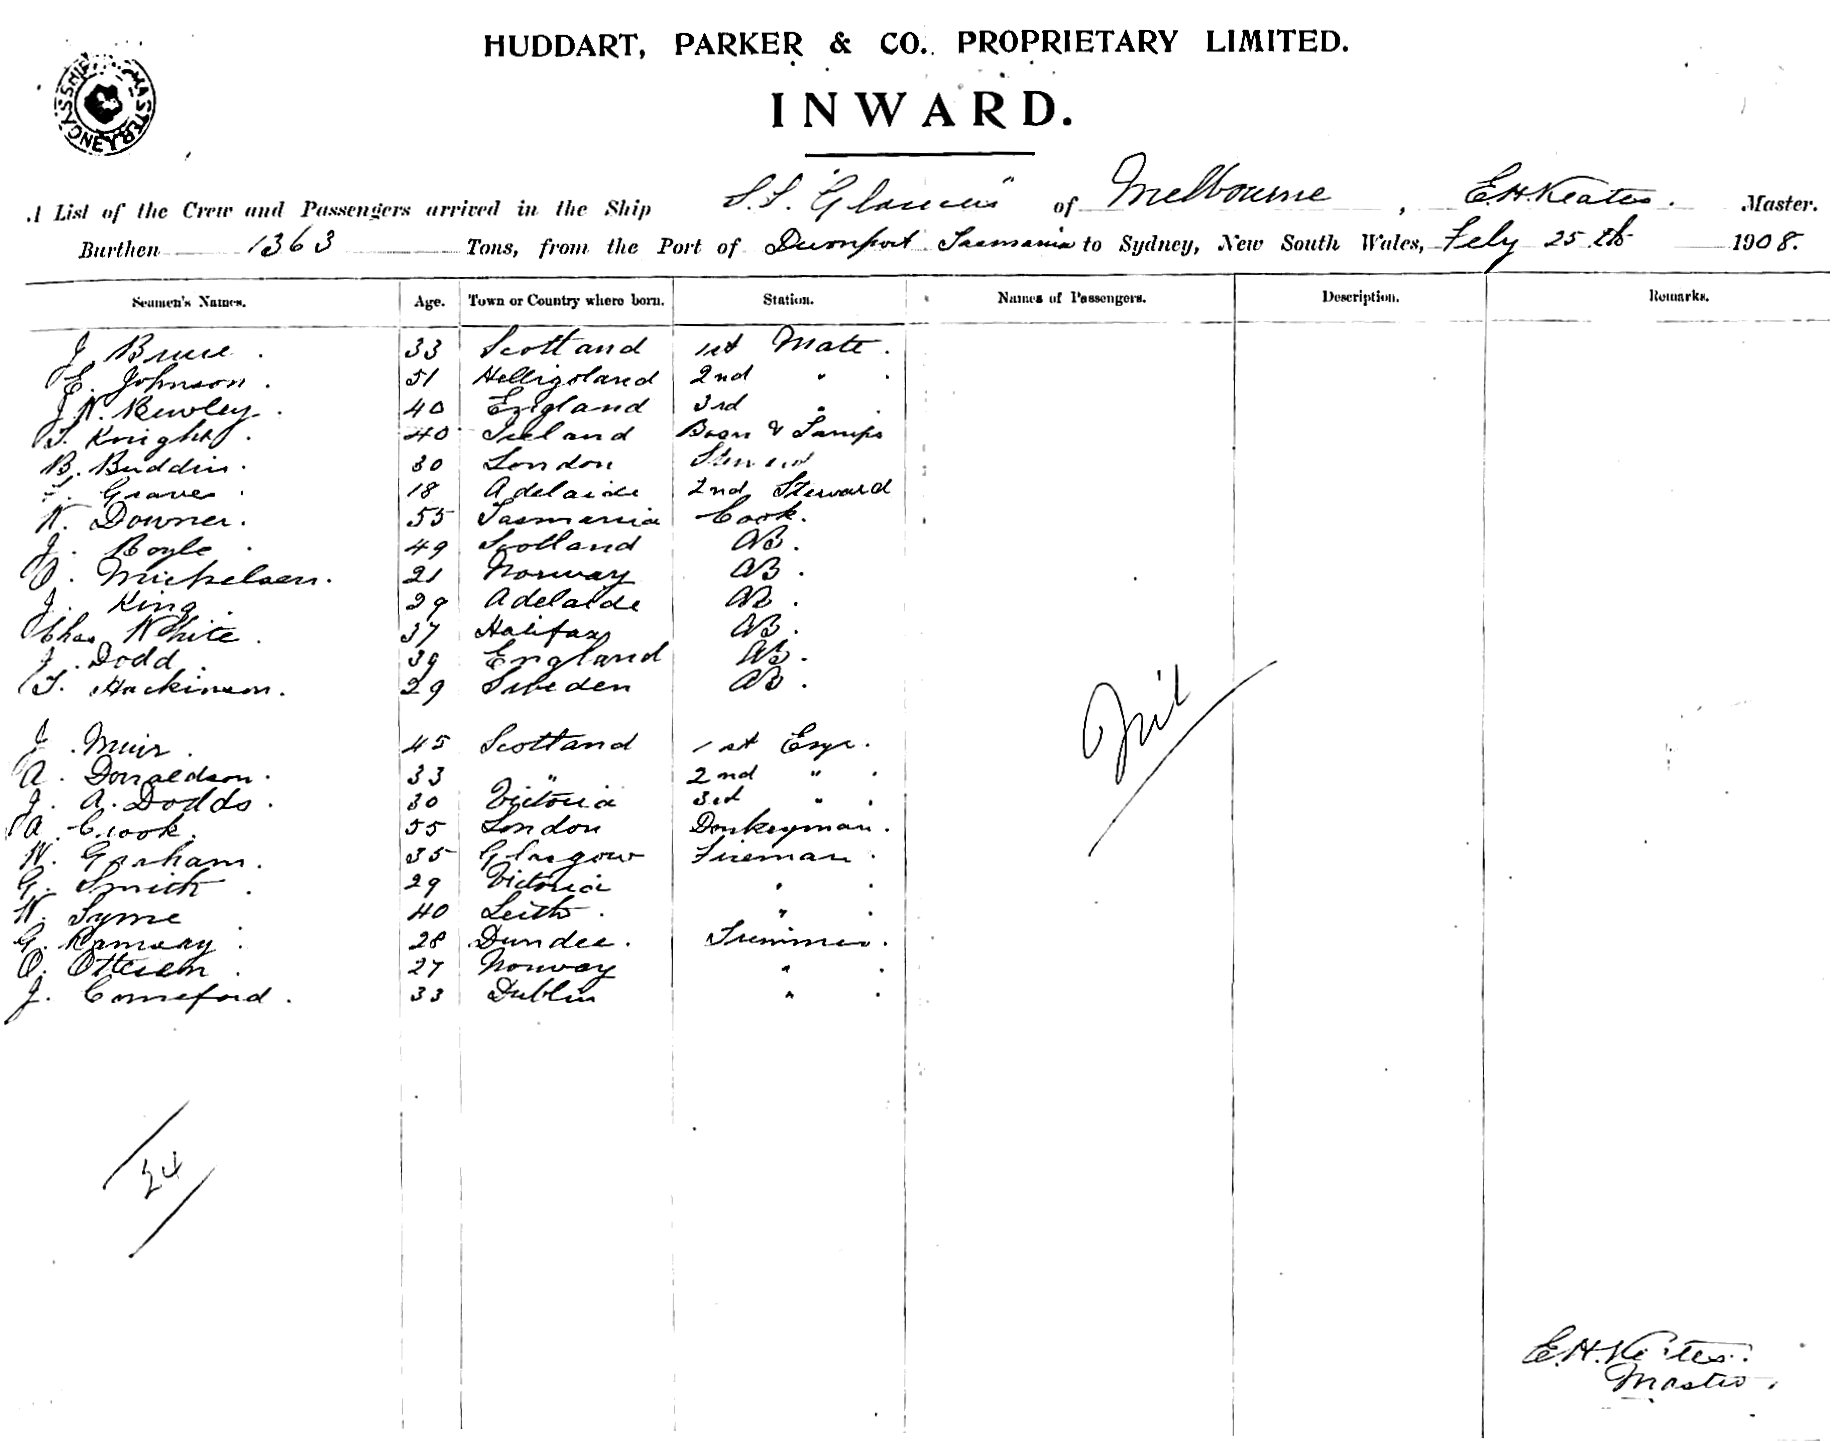 HUDDART, PARKER & CO. PROPRIETARY LIMITED.
INWARD.
A List of the Crew and Passengers arrived in the Ship S.S. "Glaucus" of Melbourne, E.H. Keates. Master.
Burthen 1363 Tons, from the Port of Devonport Tasmania to Sydney, New South Wales, Feby 25th 1908.
Seamen's Names. Age. Town or Country where born. Station. Names of Passengers. Description. Remarks.
J. Bruce. 33 Scotland 1st Mate.
E. Johnson. 51 Helligoland 2nd " .
J. W. Bewley. 40 England 3rd " .
T. Knight. 40 Ireland Bosn & Lamps
B. Buddin. 30 London Steward
Graves. 18 Adelaide 2nd Steward
W. Downer. 55 Tasmania Cook.
J. Boyle. 49 Scotland AB.
O. Michelsen. 21 Norway AB.
J. King. 29 Adelaide AB.
Chas White. 37 Halifax AB.
J. Dodd. 39 England AB.
T. Hackinson. 29 Sweden AB.
J. Muir. 45 Scotland 1st Engr.
A. Donaldson. 33 " 2nd " .
J. A. Dodds. 30 Victoria 3rd " .
A. Crook. 55 London Donkeyman.
W. Graham. 35 Glasgow Fireman.
G. Smith. 29 Victoria " .
W. Syme 40 Leith. " .
G. Ramsay. 28 Dundee. Trimmer.
O. Ottesen. 27 Norway " .
J. Comeford. 33 Dublin " .
Nil
24
E.H. Keates.
Master.